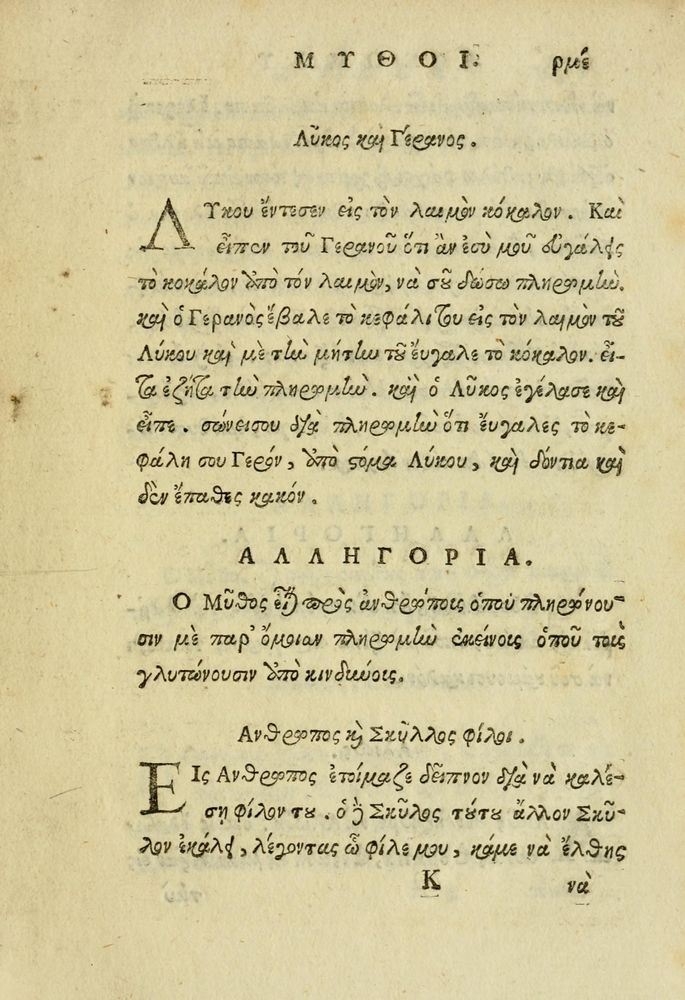 ΜΥΘΟΙ. ρμέ
Λῦκος καὶ Γέρανος.
ΛΥκου ἔντεσεν εἰς τὸν λαιμὸν κόκαλον. Καὶ
εἶπεν τοῦ Γερανοῦ ὅτι ἂν ἐσὺ μοῦ εὐγάλῃς
τὸ κοκάλον ἀπὸ τόν λαιμὸν, νὰ σοῦ δώσω πληρωμὴν.
καὶ ὁ Γερανὸς ἔβαλε τὸ κεφάλι του εἰς τὸν λαιμὸν τοῦ
Λύκου καὶ μὲ τὴν μήτην τοῦ ἔυγαλε τὸ κόκαλον. εἶ-
τα ἐζήτα τὴν πληρωμὴν. καὶ ὁ Λῦκος ἐγέλασε καὶ
εἶπε. σώνει σου διὰ πληρωμὴν ὅτι ἔυγαλες τὸ κε-
φάλη σου Γερόν, ἀπὸ στόμα Λύκου, καὶ δόντια καὶ
δὲν ἔπαθες κακόν.
ΑΛΛΗΓΟΡΙΑ.
Ο Μῦθος εἶναι πρὸς ἀνθρώποις ὁποὺ πληρώνου-
σιν μὲ παρ' ὅμοιαν πληρωμὴν ἐκείνοις ὁποῦ τοὺς
γλυτώνουσιν ἀπὸ κινδύνοις.
Ανθρωπος καὶ Σκῦλλος φίλοι.
ΕΙς Ανθρωπος ἐτοίμαζε δεῖπνον διὰ νὰ καλέ-
ση φίλον του. ὁ δὲ Σκῦλος τούτου ἄλλον Σκῦ-
λον ἐκάλει, λέγοντας ὦ φίλε μου, κάμε νὰ ἔλθης
Κ νὰ